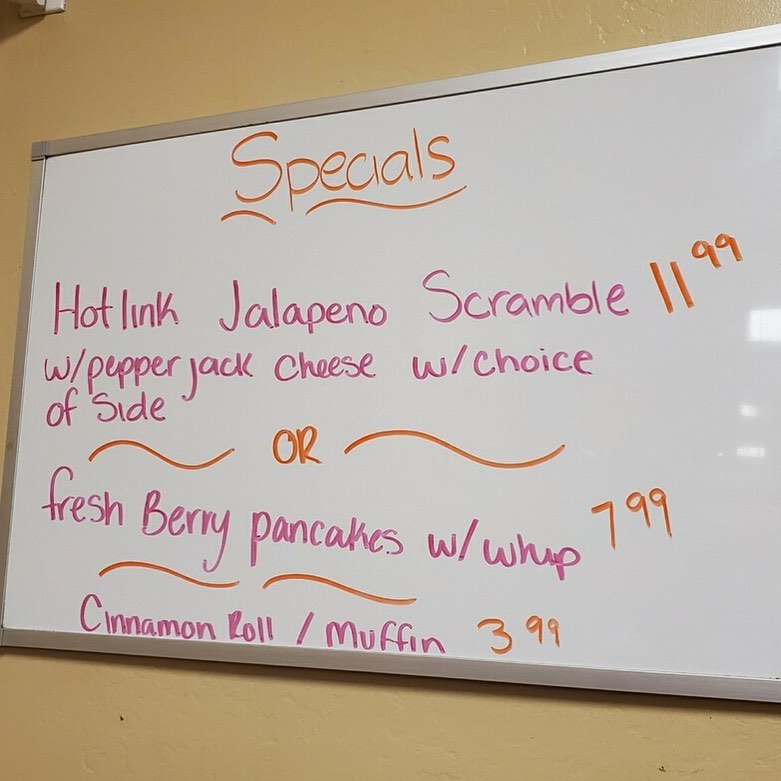 Specials
Hotlink Jalapeno Scramble 11 99
w/pepper jack cheese w/choice
of Side
OR
fresh Berry pancakes w/whip 7 99
Cinnamon Roll / Muffin 3 99